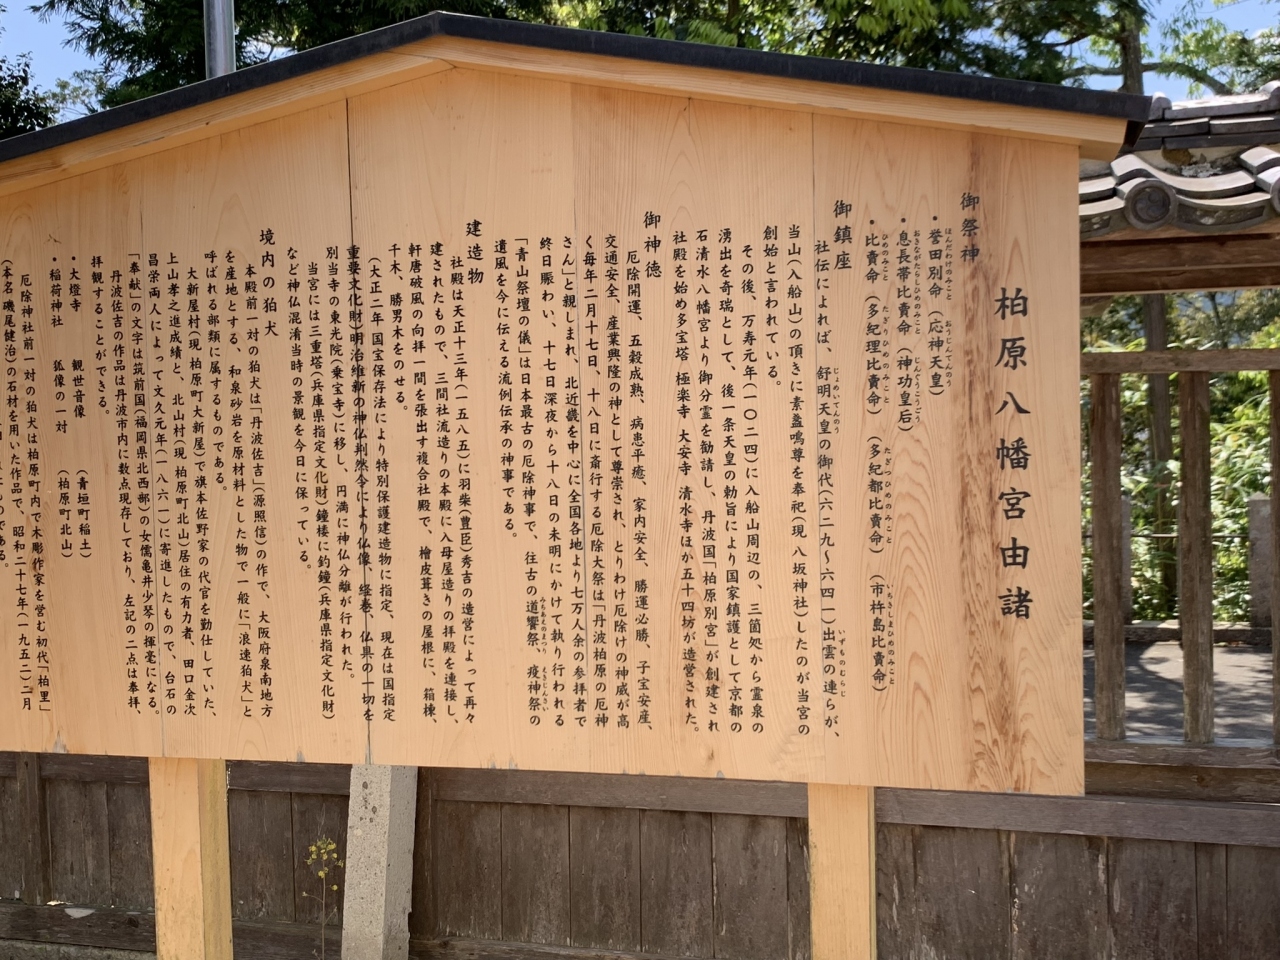 柏原八幡宮由緒
御祭神
・誉田別命(応神天皇)
・息長帯比賣命(神功皇后)
・比賣命(多紀理比賣命)(多紀都比賣命)(市杵島比賣命)
御鎮座
社伝によれば、舒明天皇の御代(六二九〜六四一)出雲の連らが、
当山(入船山)の頂きに素盞鳴尊を奉祀(現八坂神社)したのが当宮の
創始と言われている。
その後、万寿元年(一〇二四)に入船山周辺の、三箇処から霊泉の
湧出を奇瑞として、後一条天皇の勅旨により国家鎮護として京都の
石清水八幡宮より御分霊を勧請し、丹波国「柏原別宮」が創建され
社殿を始め多宝塔 極楽寺 大安寺 清水寺ほか五十四坊が造営された。
御神徳
厄除開運、五穀成熟、病患平癒、家内安全、勝運必勝、子宝安産、
交通安全、産業興隆の神として尊崇され、とりわけ厄除けの神威が高
く毎年二月十七日、十八日に斎行する厄除大祭は「丹波柏原の厄神
さん」と親しまれ、北近畿を中心に全国各地より七万人余の参拝者で
終日賑わい、十七日深夜から十八日の未明にかけて執り行われる
「青山祭壇の儀」は日本最古の厄除神事で、往古の道饗祭、疫神祭の
遺風を今に伝える流例伝承の神事である。
建造物
社殿は天正十三年(一五八五)に羽柴(豊臣)秀吉の造営によって再々
建されたもので、三間社流造りの本殿に入母屋造りの拝殿を連接し、
軒唐破風の向拝一間を張出す複合社殿で、檜皮葺きの屋根に、箱棟、
千木、勝男木をのせる。
(大正二年 国宝保存法により特別保護建造物に指定、現在は国指定
重要文化財)明治維新の神仏判然令により仏像、経巻、仏具の一切を
別当寺の東光院(乗宝寺)に移し、円満に神仏分離が行われた。
当宮には三重塔(兵庫県指定文化財)鐘楼に釣鐘(兵庫県指定文化財)
など神仏混淆当時の景観を今日に保っている。
境内の狛犬
本殿前一対の狛犬は「丹波佐吉」(源照信)の作で、大阪府泉南地方
を産地とする、和泉砂岩を原材料とした物で一般に「浪速狛犬」と
呼ばれる部類に属するものである。
大新屋村(現柏原町大新屋)で旗本佐野家の代官を勤仕していた、
上山孝之進成績と、北山村(現柏原町北山)居住の有力者、田口金次
昌栄両人によって文久元年(一八六一)に寄進したもので、台石の
「奉献」の文字は筑前国(福岡県北西部)の女儒亀井少琴の揮毫になる。
丹波佐吉の作品は丹波市内に数点現存しており、左記の二点は参拝、
拝観することができる。
・大燈寺 観世音像 (青垣町稲土)
・稲荷神社 狐像の一対 (柏原町北山)
厄除神社前一対の狛犬は柏原町内で木彫作家を営む初代「柏里」
(本名磯尾健治)の石材を用いた作品で、昭和二十七年(一九五二)二月